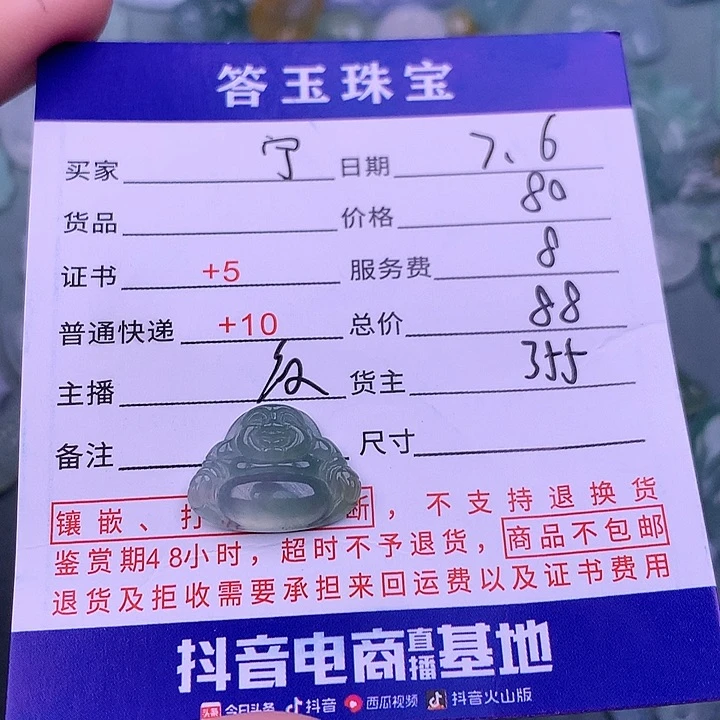 答玉珠宝
买家 宁 日期 7、6
货品 价格 80
证书 +5 服务费 8
普通快递 +10 总价 88
主播 货主 355
备注 尺寸
镶嵌、打 断，不支持退换货
鉴赏期48小时，超时不予退货，商品不包邮
退货及拒收需要承担来回运费以及证书费用
抖音电商直播基地
头条 今日头条 抖音 西瓜视频 抖音火山版